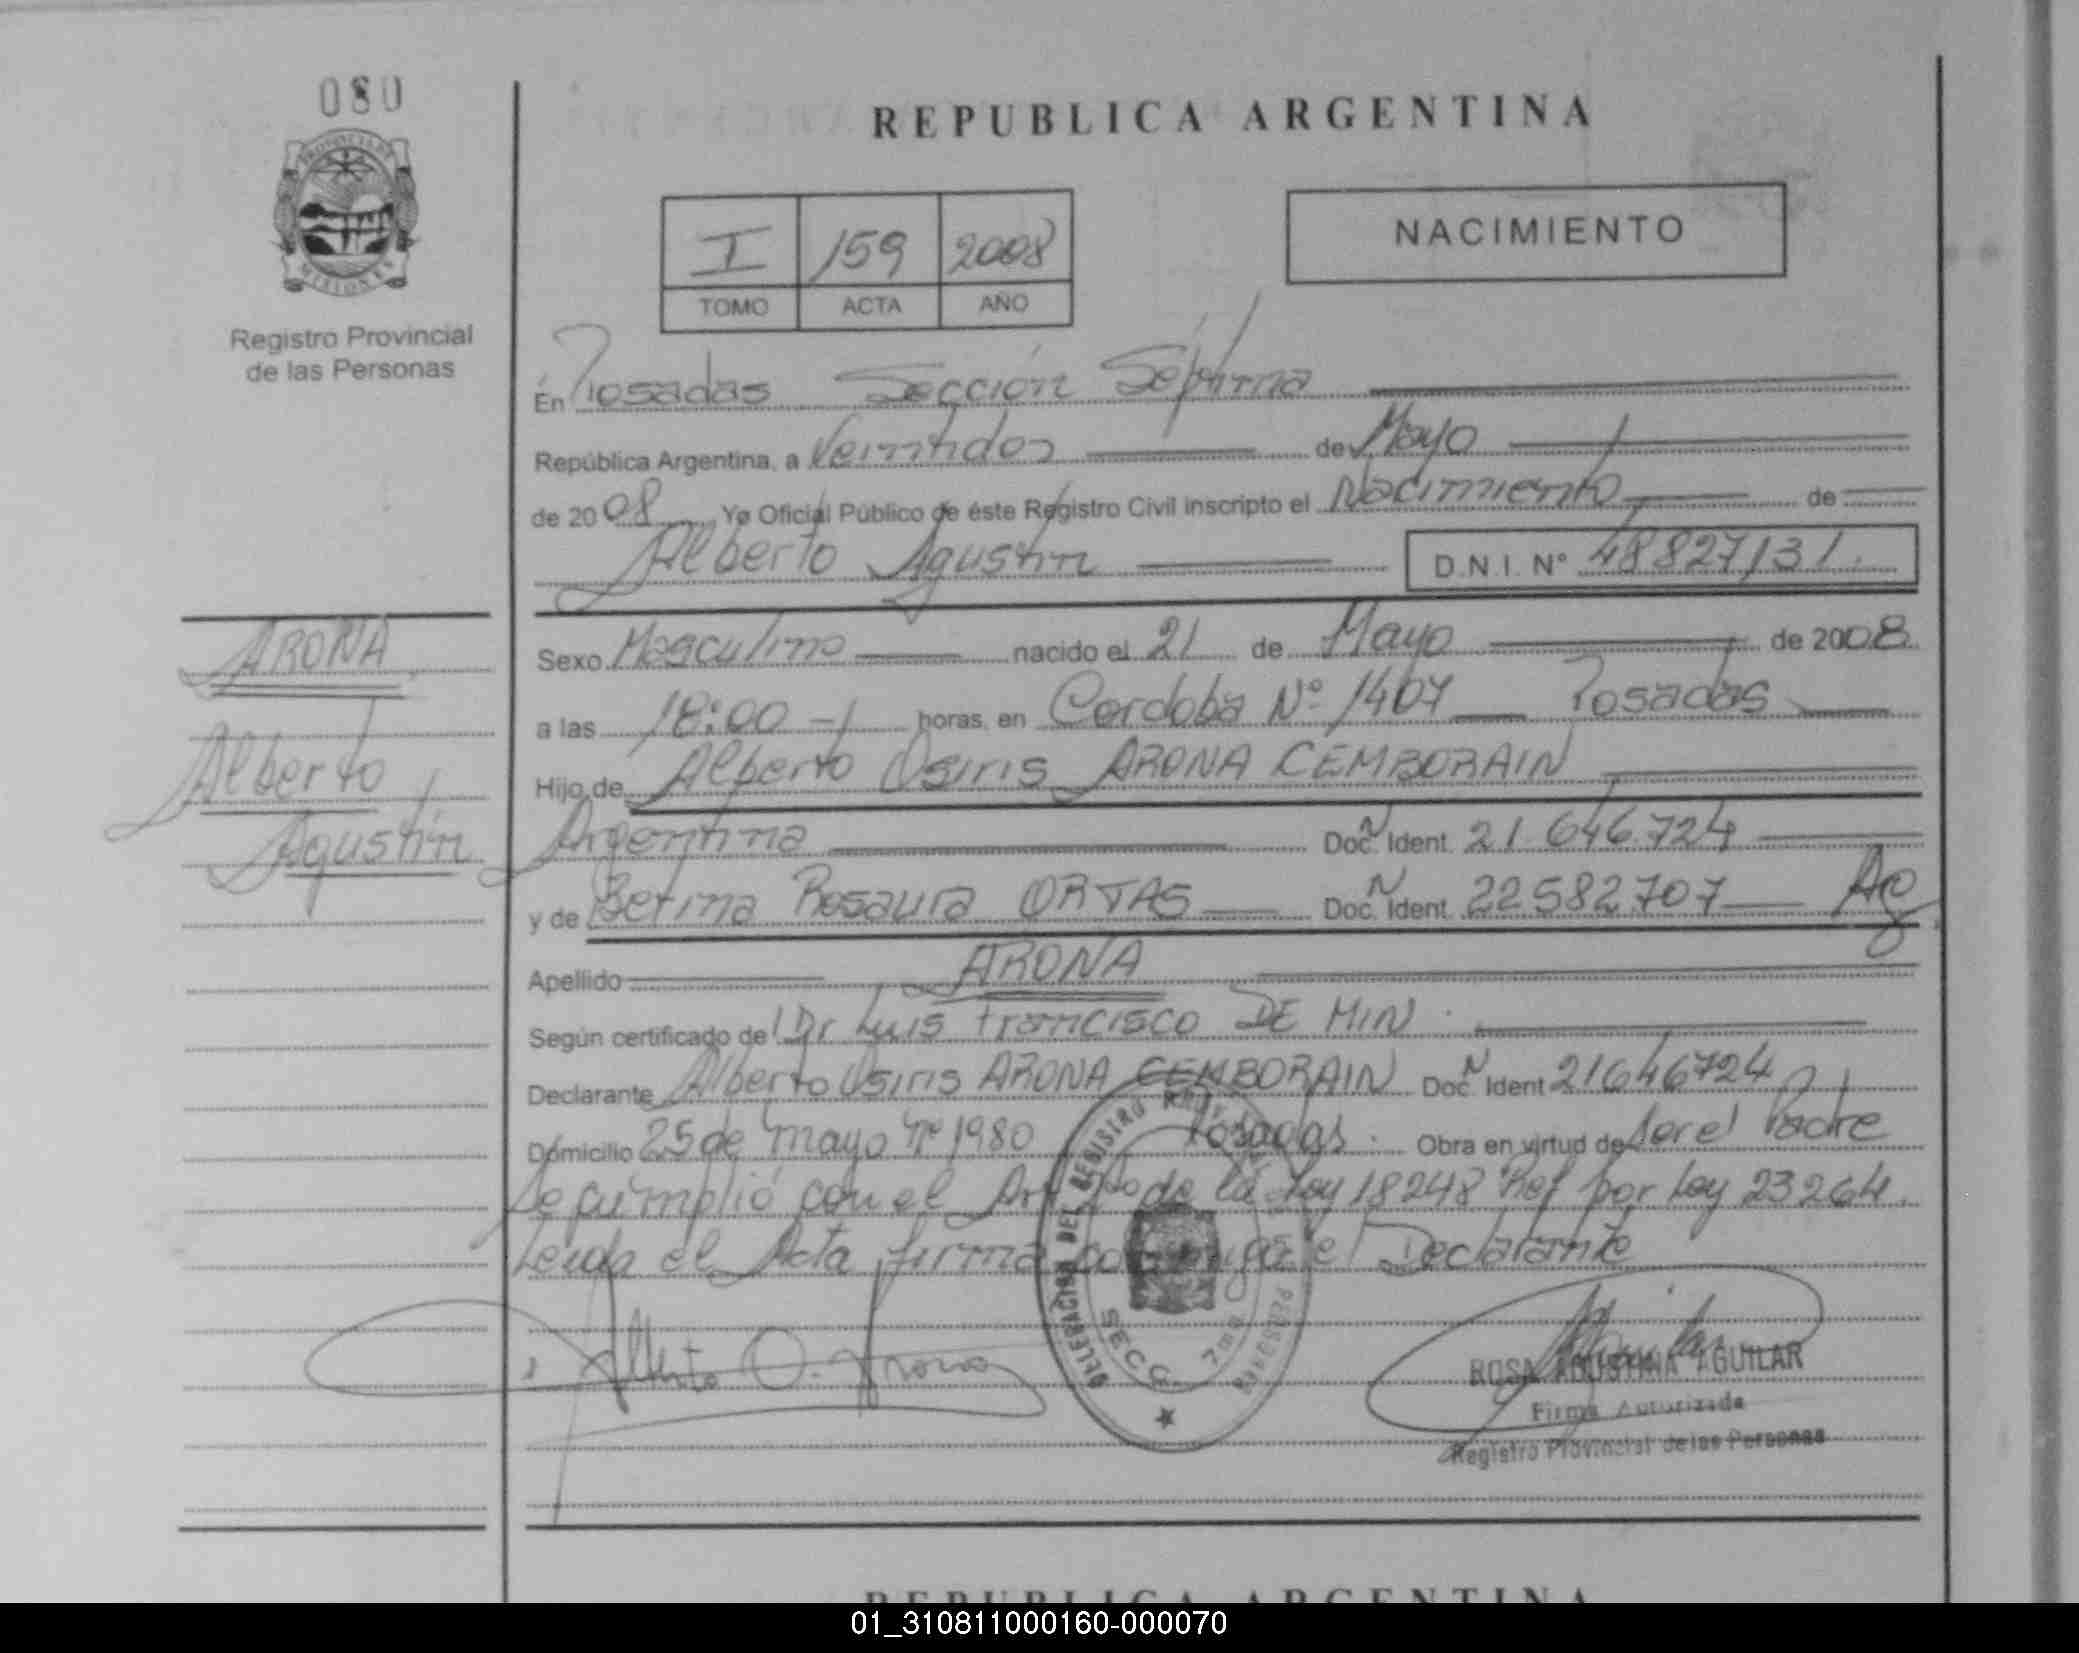 080
PROVINCIA DE
MISIONES
Registro Provincial
de las Personas
REPUBLICA ARGENTINA
I 159 2008
TOMO ACTA AÑO
NACIMIENTO
En Posadas Sección Séptima
República Argentina, a Veintidos de Mayo
de 2008 Yo Oficial Público de éste Registro Civil inscripto el Nacimiento de
Alberto Agustín D.N.I. Nº 48827131.
ARONA
Alberto
Agustín
Sexo Masculino nacido el 21 de Mayo de 2008
a las 18:00 horas, en Cordoba Nº 1407 Posadas
Hijo de Alberto Osiris ARONA CEMBORAIN
Argentina Doc. Ident. 21.646.724
y de Betina Rosaura ORTAS Doc. Ident. 22582707 Ag
Apellido ARONA
Según certificado de Dr Luis Francisco DE MIN
Declarante Alberto Osiris ARONA CEMBORAIN Doc. Ident 21646724
Domicilio 25 de mayo Nº 1980 Posadas. Obra en virtud de ser el Padre
Se cumplió con el Art de la Ley 18248 Ref por Ley 23264.
Leida el Acta firma conmigo el Declarante
Alberto O. Arona
DELEGACION DEL REGISTRO PROV. DE LAS PERSONAS
SECC. 7ma
ROSA AGUSTINA AGUILAR
Firma Autorizada
Registro Provincial de las Personas
REPUBLICA ARGENTINA
01_310811000160-000070